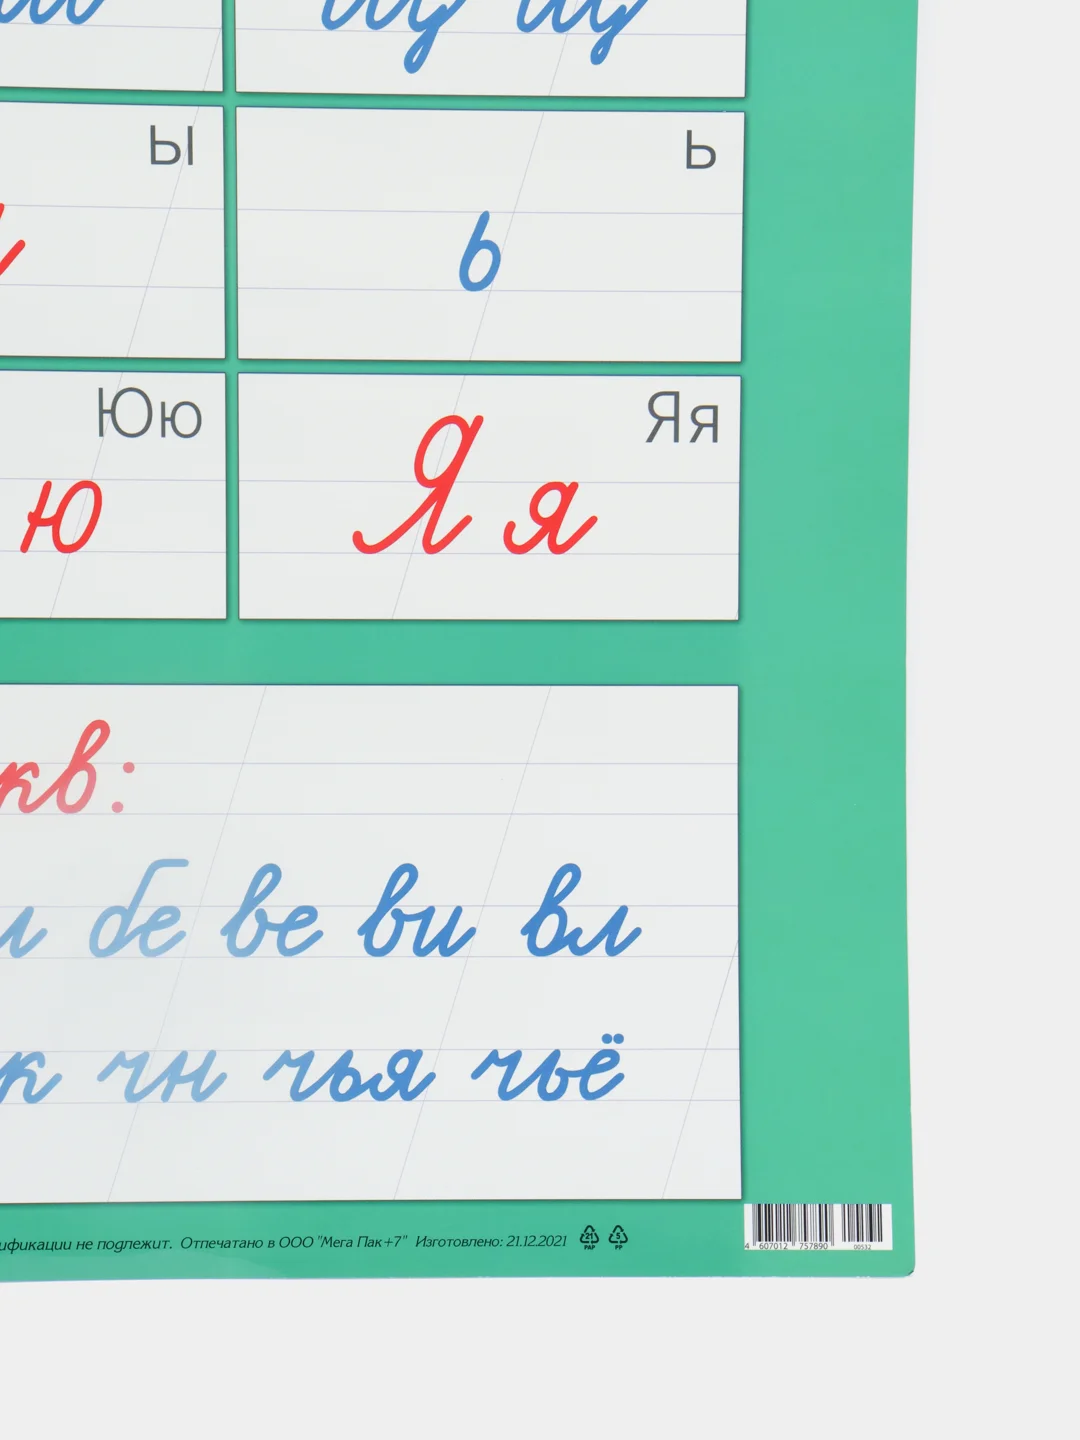 Щ щ
Ы
Ь
ь
Юю
Яя
ю
Я я
кв:
л бе ве ви вл
к чн чья чьё
ификации не подлежит. Отпечатано в ООО "Мега Пак+7" Изготовлено: 21.12.2021
21 PAP 5 PP
4 607012 757890 00532